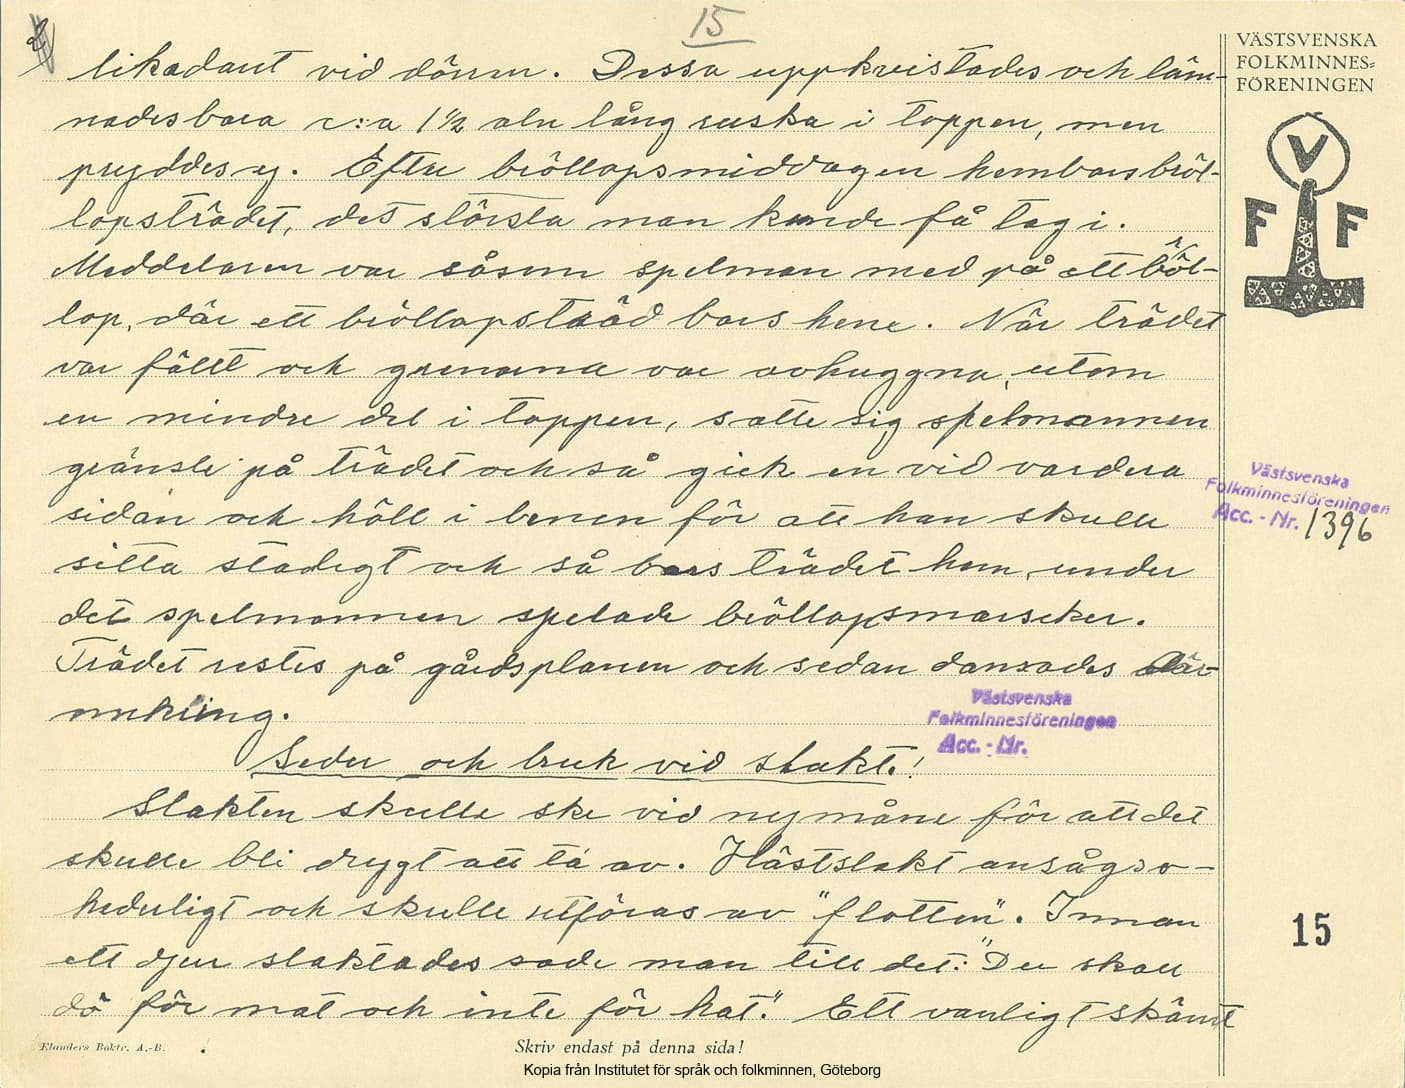 15
likadant vid dörren. Dessa uppkvistades och läm-
nades bara c:a 1 1/2 aln lång ruska i toppen, men
pryddes ej. Efter bröllopsmiddagen hembars bröl-
lopsträdet, det största man kunde få tag i.
Meddelaren var såsom spelman med på ett bröl-
lop, där ett bröllopsträd bars hem. När trädet
var fällt och grenarna var avhuggna, utom
en mindre del i toppen, satte sig spelmannen
gränsle på trädet och så gick en vid vardera
sidan och höll i benen för att han skulle
sitta stadigt och så bars trädet hem, under
det spelmannen spelade bröllopsmarscher.
Trädet restes på gårdsplanen och sedan dansades där-
omkring.
Seder och bruk vid slakt.!
Slakten skulle ske vid nymåne för att det
skulle bli drygt att ta av. Hästslakt ansågs o-
hederligt och skulle utföras av "flotten". Innan
ett djur slaktades sade man till det: "Du skall
dö för mat och inte för hat." Ett vanligt skämt
VÄSTSVENSKA
FOLKMINNES-
FÖRENINGEN
V
F F
Västsvenska
Folkminnesföreningen
Acc. - Nr. 1396
Västsvenska
Folkminnesföreningen
Acc. - Nr.
15
Elanders Boktr. A.-B.
Skriv endast på denna sida!
Kopia från Institutet för språk och folkminnen, Göteborg